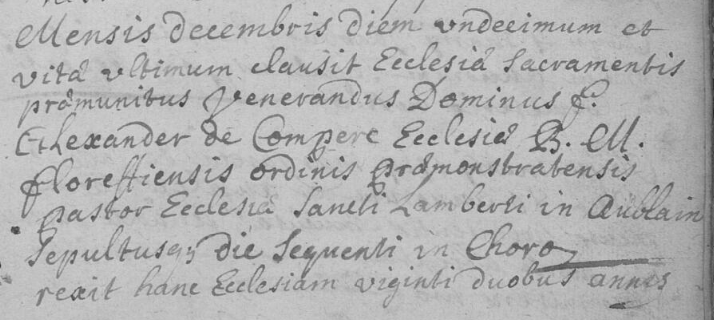 Mensis decembris diem undecimum et
vitæ ultimum clausit Ecclesiæ Sacramentis
præmunitus Venerandus Dominus f.
Alexander de Compere Ecclesiæ B. M.
Floreffiensis ordinis præmonstratensis
pastor Ecclesiæ Sancti Lamberti in Aublain
Sepultusq; die Sequenti in Choro
rexit hanc Ecclesiam viginti duobus annos